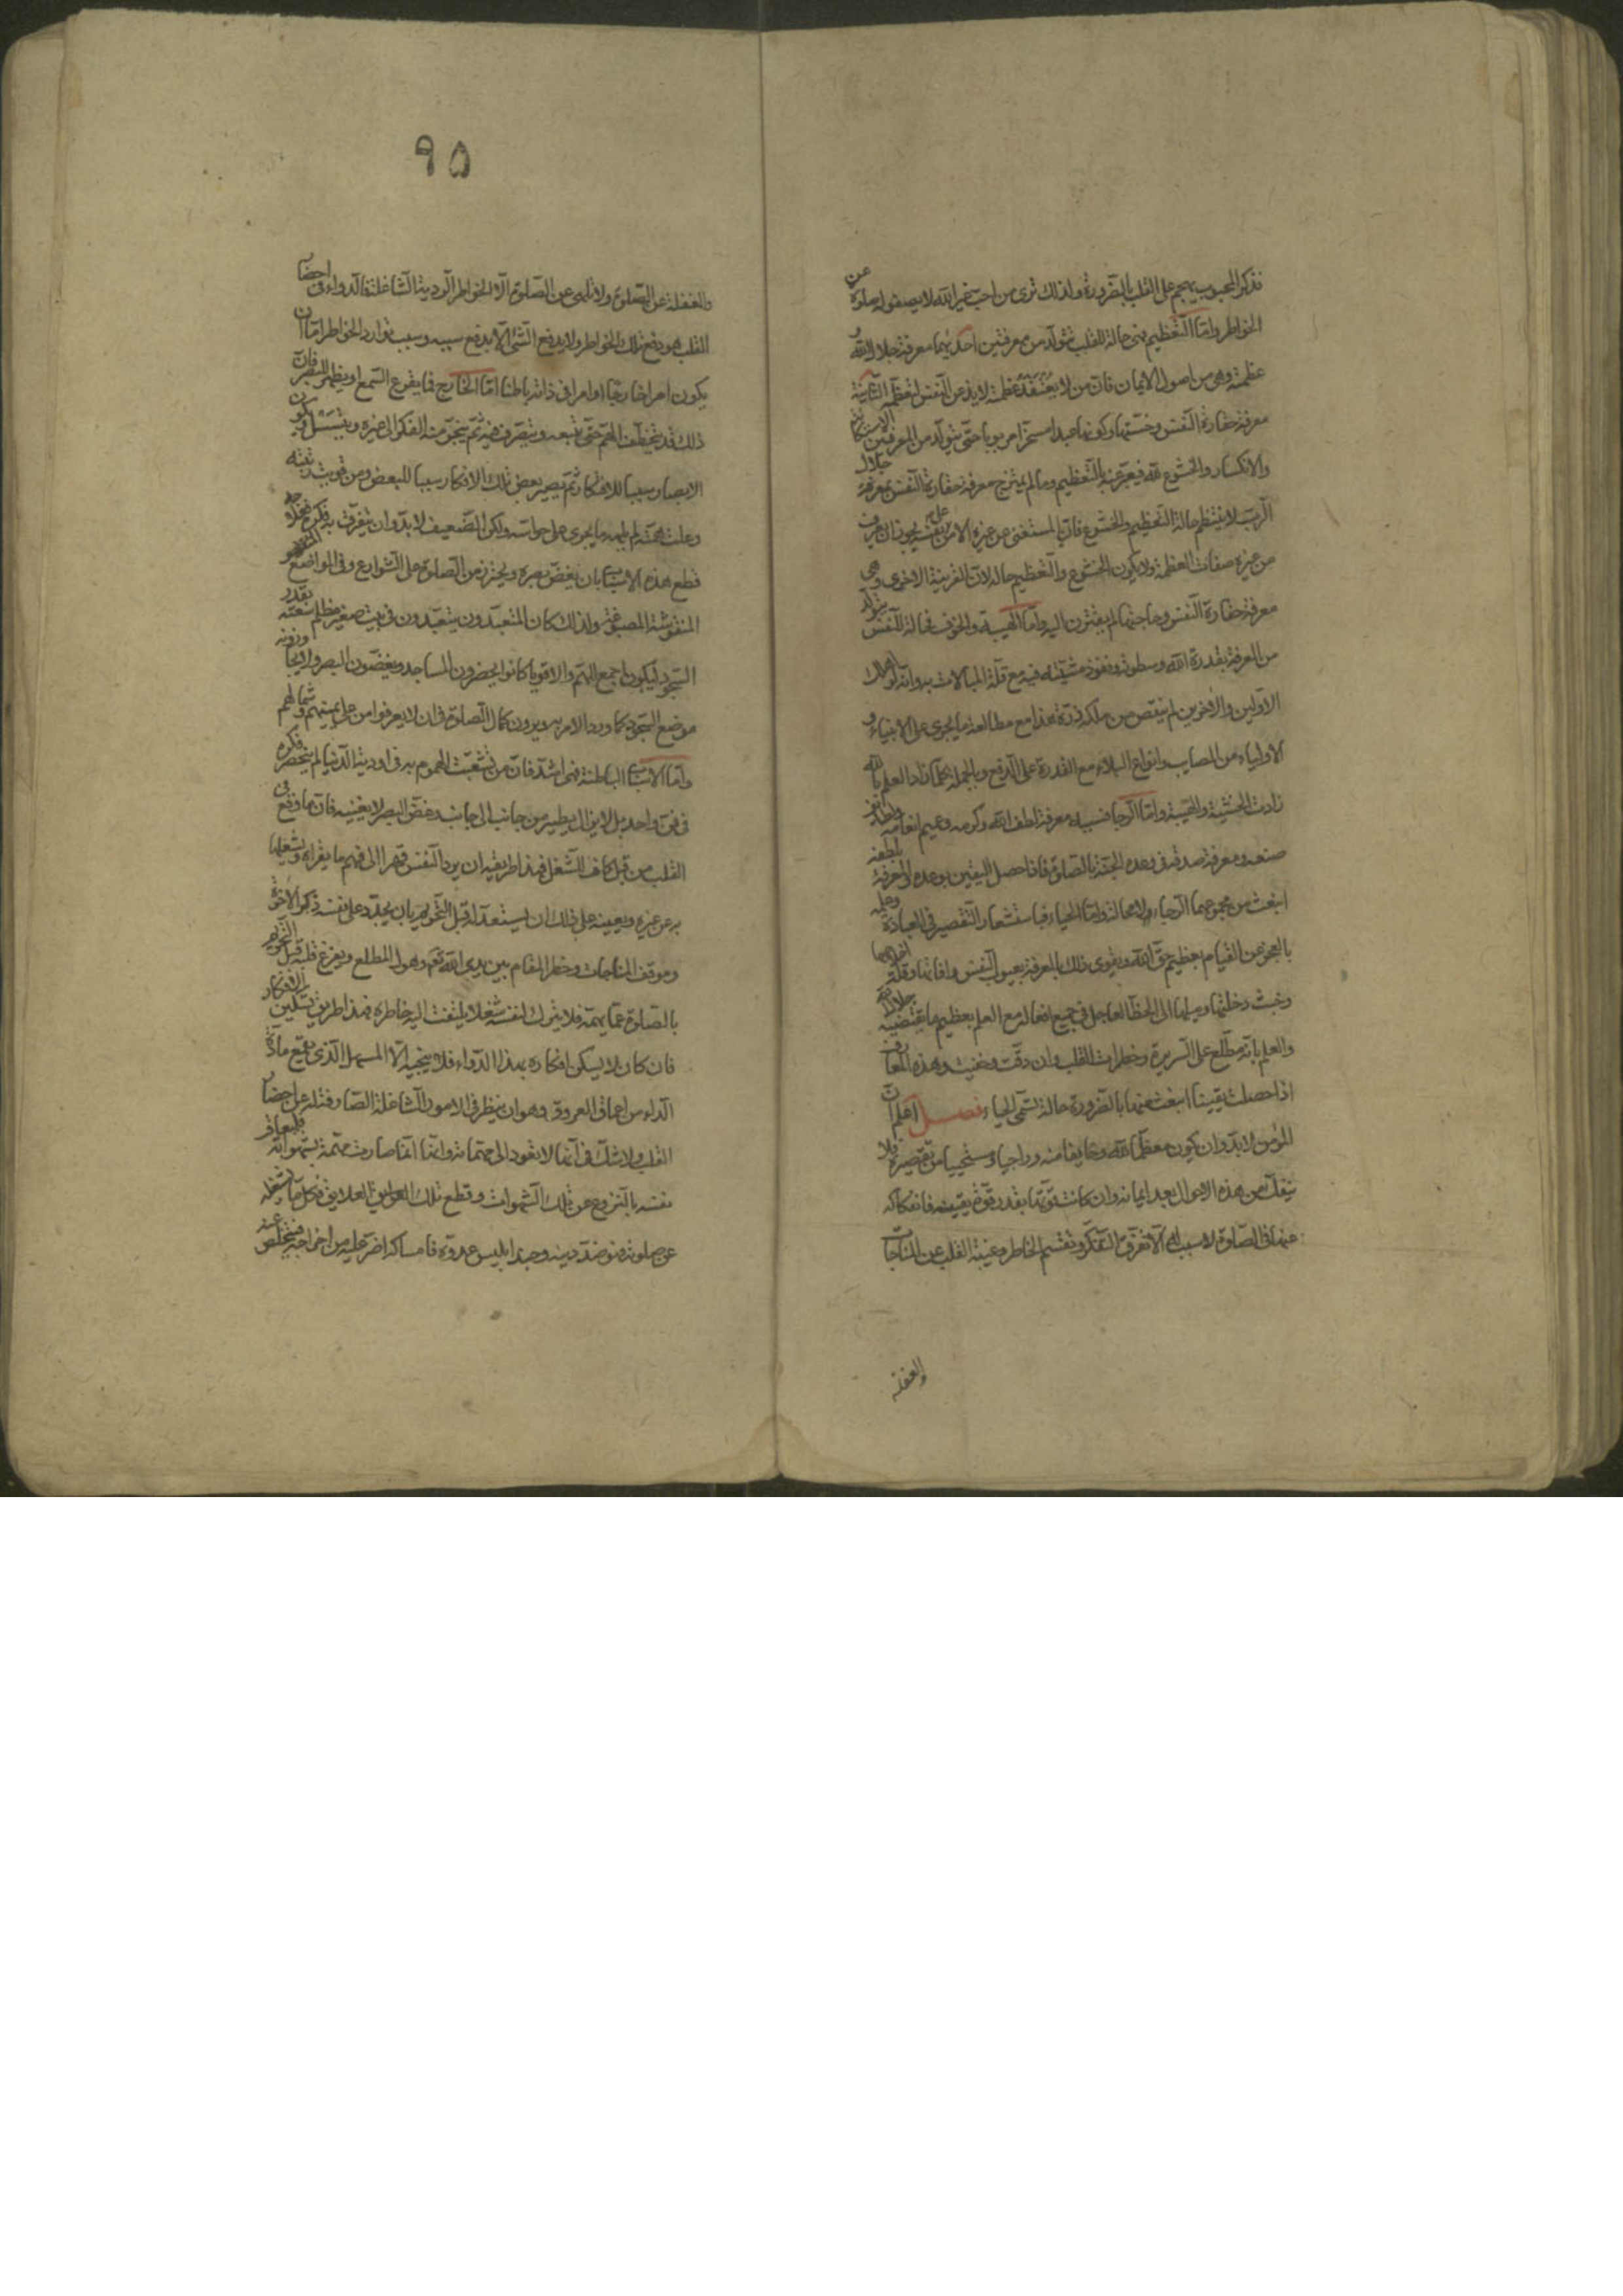 فذكر المحبوب يهجم على القلب بالضرورة ولذلك ترى من احب غير الله لا يصفو له صلوة عن
الخواطر وامّا التّعظيم فهى حالة للقلب تتولّد من معرفتين احديهما معرفة جلال الله و
عظمته وهى من اصول الايمان فانّ من لا يعتقد عظمته لا يذعن النّفس لتعظيمه الثّانية
معرفة حقارة النّفس وخسّتها وكونها عبدا مسخّرا مربوبا حتّى يتولّد من المعرفتين الاستكانة
والانكسار والخشوع لله فيعبّر عنه بالتّعظيم وما لم يمتزج معرفة حقارة النّفس بمعرفة جلال
الرّبّ لا ينتظم حالة التّعظيم والخشوع فانّ المستغنى عن غيره الامن على نفسه يجوز ان يعرف
من غيره صفات العظمة ولا يكون الخشوع والتّعظيم حاله لانّ القرينة الاخرى وهى
معرفة حقارة النّفس وحاجتها لم يقترن اليه وامّا الهيبة والخوف فحالة للنّفس يتولّد
من المعرفة بقدرة الله وسطوته ونفوذ مشيّته فيه مع قلّة المبالات به وانّه لو اهلك
الاوّلين والاخرين لم ينقص من ملكه ذرّة هذا مع مطالعة ما يجرى على الانبياء و
الاولياء من المصايب وانواع البلاء مع القدرة على الدّفع وبالجملة كلّما زاد العلم بالله
زادت الخشية والهيبة وامّا الرّجا فسببه معرفة لطف الله وكرمه وعميم انعامه ولطايف
صنعه ومعرفة صدقه فى وعده الجنّة بالصّلوة فاذا حصل اليقين بوعده والمعرفة بلطفه
انبعث من مجموعهما الرّجاء لا محالة وامّا الحياء فباستشعار التّقصير فى العبادة وعلمه
بالعجز عن القيام بعظيم حقّ الله ويقوى ذلك بالمعرفة بعيوب النّفس وافاتها وقلّة اخلاصها
وخبث دخلتها وميلها الى الحظّ العاجل فى جميع افعاله مع العلم بعظيم ما يقتضيه جلال الله
والعلم بانّه مطّلع على السّريرة وخطرات القلب وان دقّت وخفيت وهذه المعارف
اذا حصلت يقينا انبعث عنها بالضّرورة حالة تسمّى الحياء فصل اعلم انّ
المؤمن لابدّ وان يكون معظّما لله وخايفا منه وراجيا ومستحييا من تقصيره ولا
ينفكّ عن هذه الاحوال بعد ايمانه وان كانت قوّتها بقدر قوّة يقينه فانفكاكه
عنها فى الصّلوة لا سبب له الّا تفرّق التّفكّر وتقسيم الخاطر وغيبة القلب عن المناجات
والغفلة
٩٥
والغفلة عن الصّلوة ولا تلهى عن الصّلوة الّا الخواطر الرّديّة الشّاغلة فالدّواء فى احضار
القلب هو دفع تلك الخواطر ولا يدفع الشّئ الّا بدفع سببه وسبب توارد الخواطر امّا ان
يكون امرا خارجا او امرا فى ذاته باطنا امّا الخارج فما يقرع السّمع او يظهر للبصر فانّ
ذلك قد يختطف الهمّ حتّى يتبعه ويتصرّف فيه ثمّ ينجرّ منه الفكر الى غيره ويتسلسل ويكون
الابصار سببا للافتكار ثمّ يصير بعض تلك الافكار سببا للبعض ومن قويت نيّته
وعلت همّته لم يلهه ما يجرى على حواسّه ولكن الضّعيف لابدّ وان يتفرّق به فكره فعلاجه
قطع هذه الاسباب بان يغضّ بصره ويحترز من الصّلوة على الشّوارع وفى المواضع
المنقوشة المصبوغة ولذلك كان المتعبّدون يتعبّدون فى بيت صغير مظلم سعته بقدر
السّجود ليكون اجمع للهمّ والاقويا كانوا يحضرون المساجد ويغضّون البصر ولا يجاوزونه
موضع السّجود كما ورد الامر به ويرون كمال الصّلوة فى ان لا يعرفوا من على يمينهم وشمالهم
وامّا الاسباب الباطنة فهى اشدّ فانّ من تشعّبت الهموم به فى اودية الدّنيا لم ينحصر فكره
فى فنّ واحد بل لا يزال يطير من جانب الى جانب وغضّ البصر لا يغنيه فانّ ما وقع فى
القلب من قبل كاف للشّغل فهذا طريقه ان يردّ النّفس قهرا الى فهم ما يقرأه ويشغلها
به عن غيره ويعينه على ذلك ان يستعدّ له قبل التّحريم بان يجدّد على نفسه ذكر الاخرة
وموقف المناجات وخطر المقام بين يدى الله تعم وهول المطلع ويفرغ قلبه قبل التّحريم
بالصّلوة عمّا يهمّه فلا يترك لنفسه شغلا يلتفت اليه خاطره فهذا طريق تسكين الافكار
فان كان لا يسكن افكاره بهذا الدّواء فلا ينجيه الّا المسهل الّذى يقمع مادّة
الدّاء من اعماق العروق وهو ان ينظر فى الامور الشّاغلة الصّارفة له عن احضار
القلب ولا شكّ فى انّها لا تعود الى مهمّاته وانّها انّما صارت مهمّة بشهواته فليعاقب
نفسه بالنّزوع عن تلك الشّهوات وقطع تلك العلايق فكلّ ما يشغله
عن صلوته فهو ضدّ دينه وجند ابليس عدوّه فامساكه اضرّ عليه من اخراجه فيتخلّص عنه